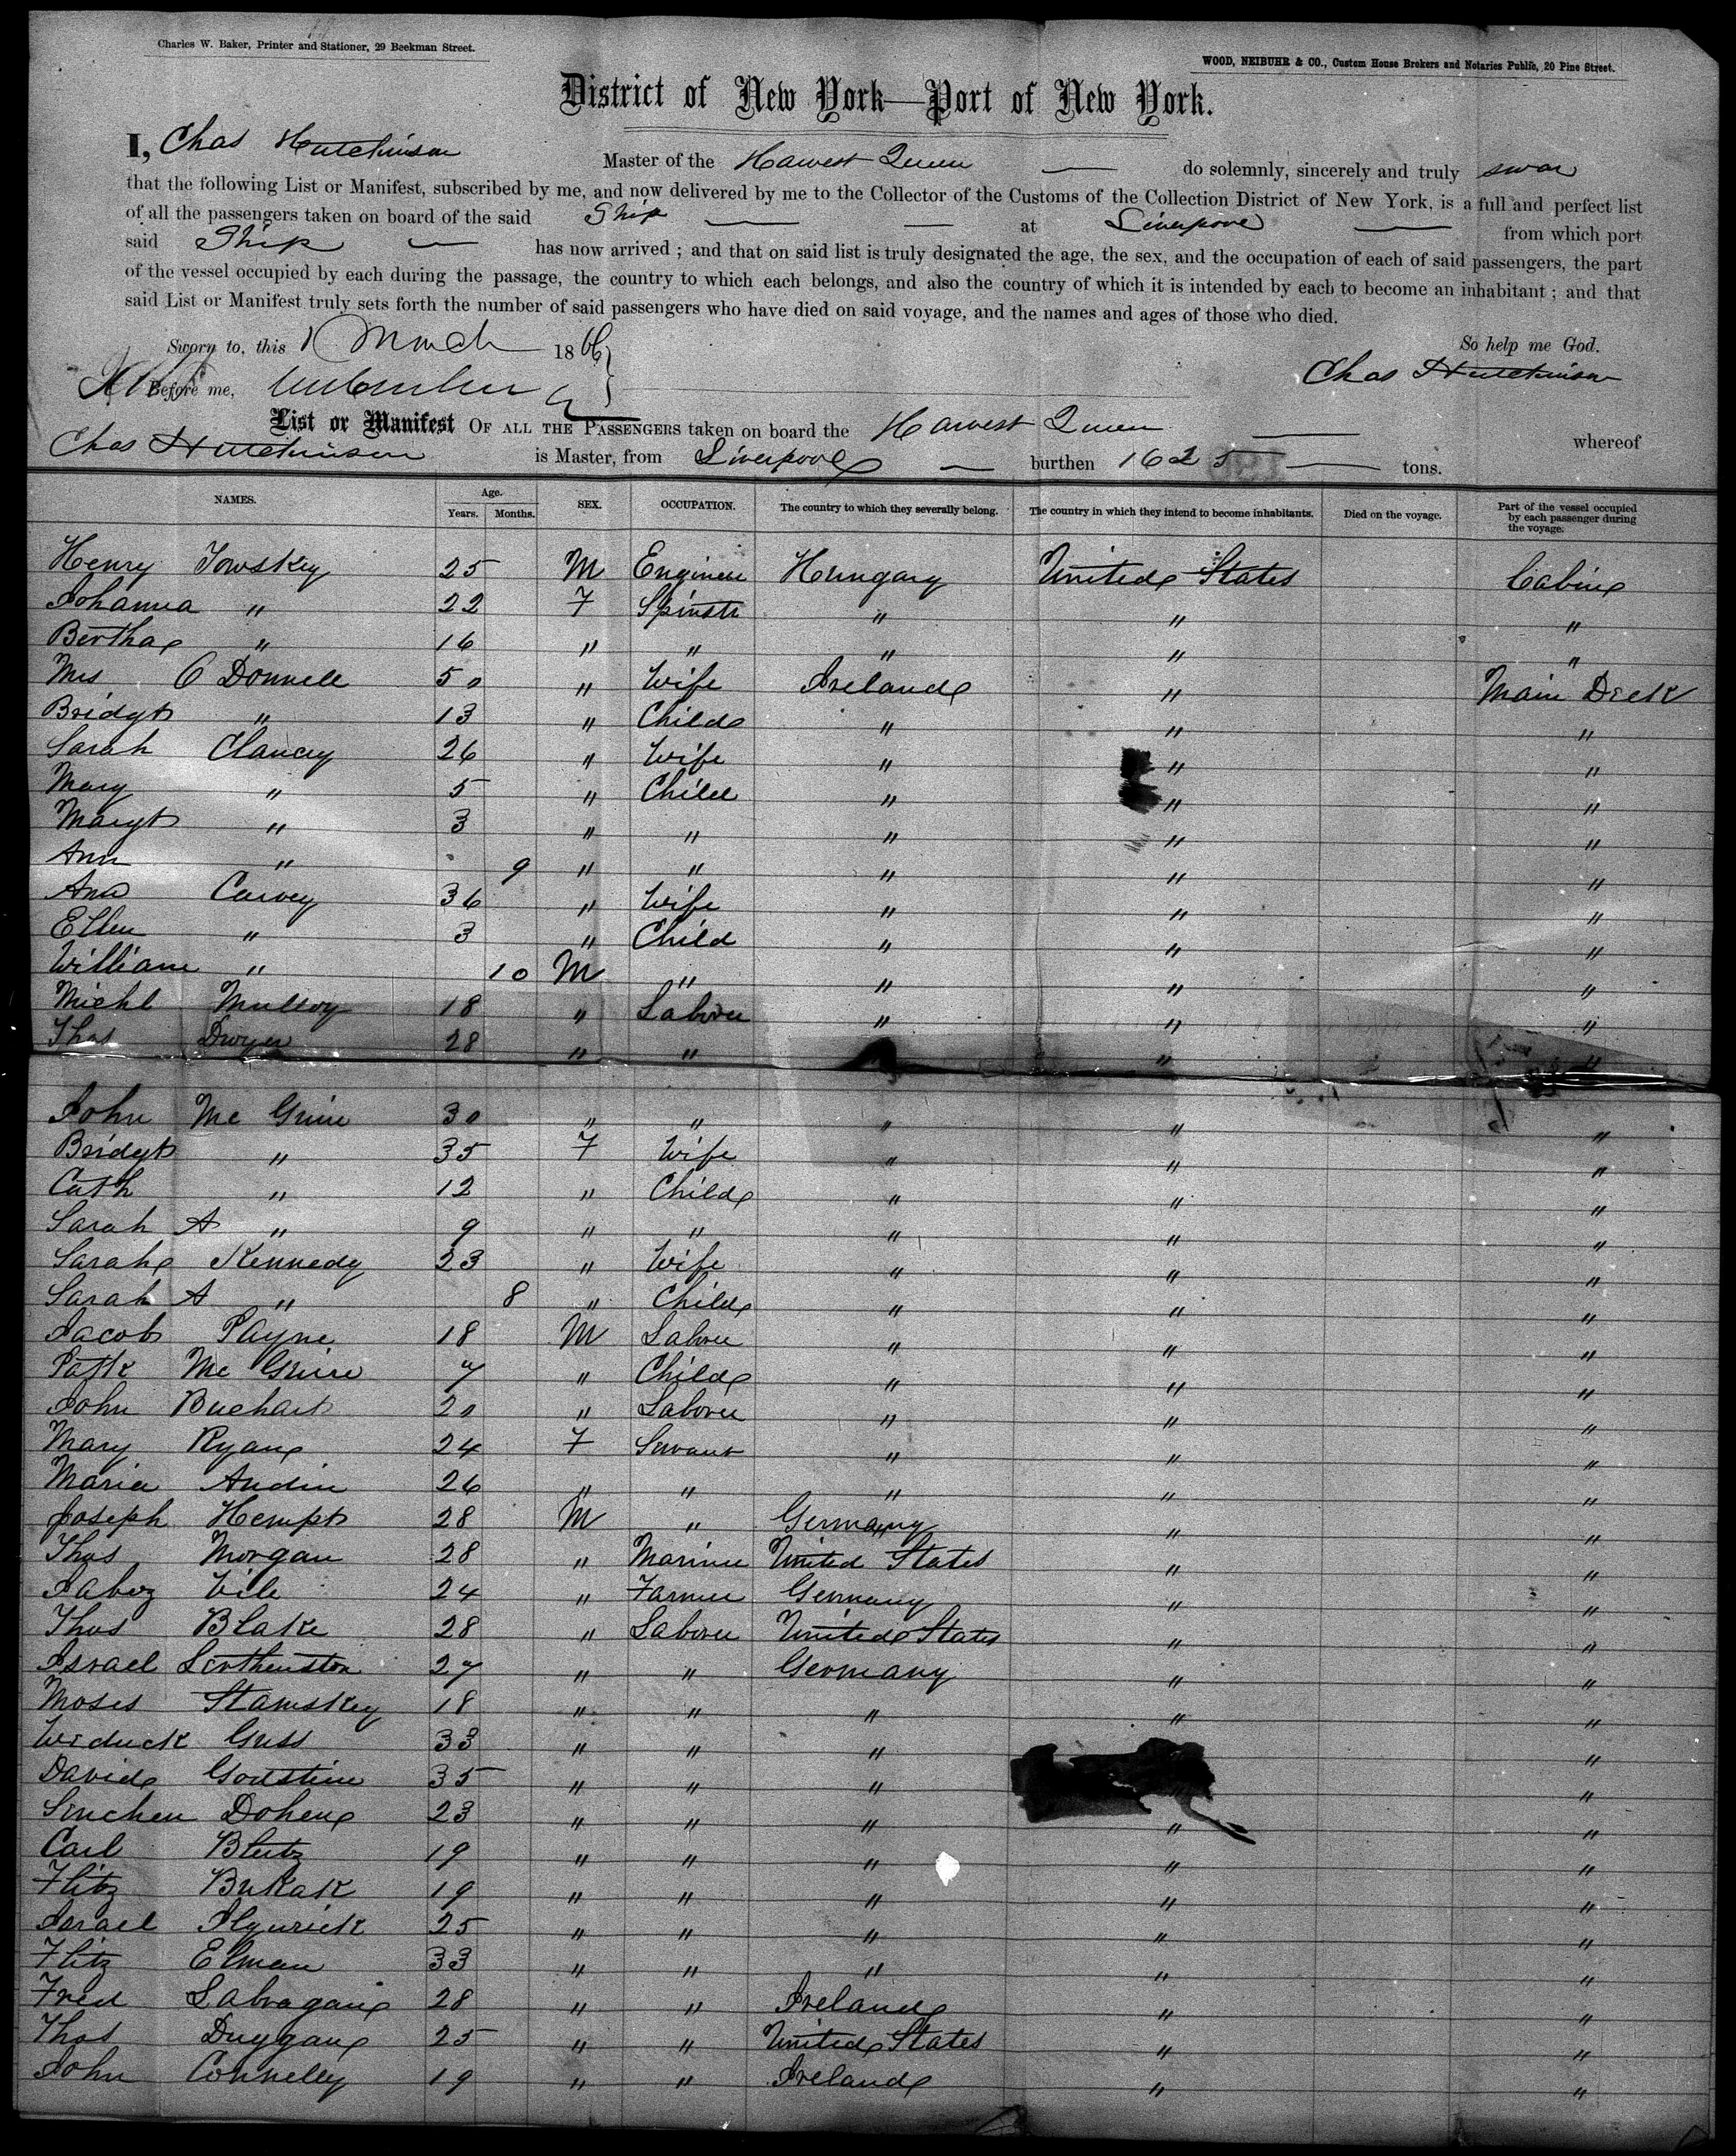 Charles W. Baker, Printer and Stationer, 29 Beekman Street.
WOOD, NEIBUHR & CO., Custom House Brokers and Notaries Public, 20 Pine Street.
District of New York—Port of New York.
I, Chas Hutchinson Master of the Harvest Queen do solemnly, sincerely and truly swear
that the following List or Manifest, subscribed by me, and now delivered by me to the Collector of the Customs of the Collection District of New York, is a full and perfect list
of all the passengers taken on board of the said Ship at Liverpool from which port
said Ship has now arrived; and that on said list is truly designated the age, the sex, and the occupation of each of said passengers, the part
of the vessel occupied by each during the passage, the country to which each belongs, and also the country of which it is intended by each to become an inhabitant; and that
said List or Manifest truly sets forth the number of said passengers who have died on said voyage, and the names and ages of those who died.
Sworn to, this 1 March 1866 So help me God.
Before me, Chas Hutchinson
List or Manifest OF ALL THE PASSENGERS taken on board the Harvest Queen whereof
Chas Hutchinson is Master, from Liverpool burthen 1625 tons.
NAMES. Age. Years. Months. SEX. OCCUPATION. The country to which they severally belong. The country in which they intend to become inhabitants. Died on the voyage. Part of the vessel occupied by each passenger during the voyage.
Henry Towskey 25 M Engineer Hungary United States Cabin
Johanna " 22 F Spinstr " " "
Bertha " 16 " " " " "
Mrs O Donnell 50 " Wife Ireland " Main Deck
Bridgt " 13 " Child " " "
Sarah Clancey 26 " Wife " " "
Mary " 5 " Child " " "
Margt " 3 " " " " "
Ann " 9 " " " " "
Ann Carvey 36 " Wife " " "
Ellen " 3 " Child " " "
William " 10 M " " " "
Michl Mulloy 18 " Laborer " " "
Thos Dwyer 28 " " " " "
John Mc Guire 30 " " " " "
Bridgt " 35 F Wife " " "
Cath " 12 " Child " " "
Sarah A " 9 " " " " "
Sarah Kennedy 23 " Wife " " "
Sarah A " 8 " Child " " "
Jacob Payne 18 M Laborer " " "
Patk Mc Guire 7 " Child " " "
John Buchart 20 " Laborer " " "
Mary Ryan 24 F Servant " " "
Maria Audin 26 " " " " "
Joseph Hempt 28 M " Germany " "
Thos Morgan 28 " Mariner United States " "
Jabez Vile 24 " Farmer Germany " "
Thos Blake 28 " Laborer United States " "
Israel 27 " " Germany " "
Moses Stamskey 18 " " " " "
Guss 33 " " " "
David Goustine 35 " " " "
Dohen 23 " " " " "
Carl Blutz 19 " " " " "
Flitz Bukak 19 " " " " "
Israel 25 " " " " "
Flitz Elman 33 " " " " "
Fred Labragan 28 " " Ireland " "
Thos Duggan 25 " " United States " "
John Connelly 19 " " Ireland " "